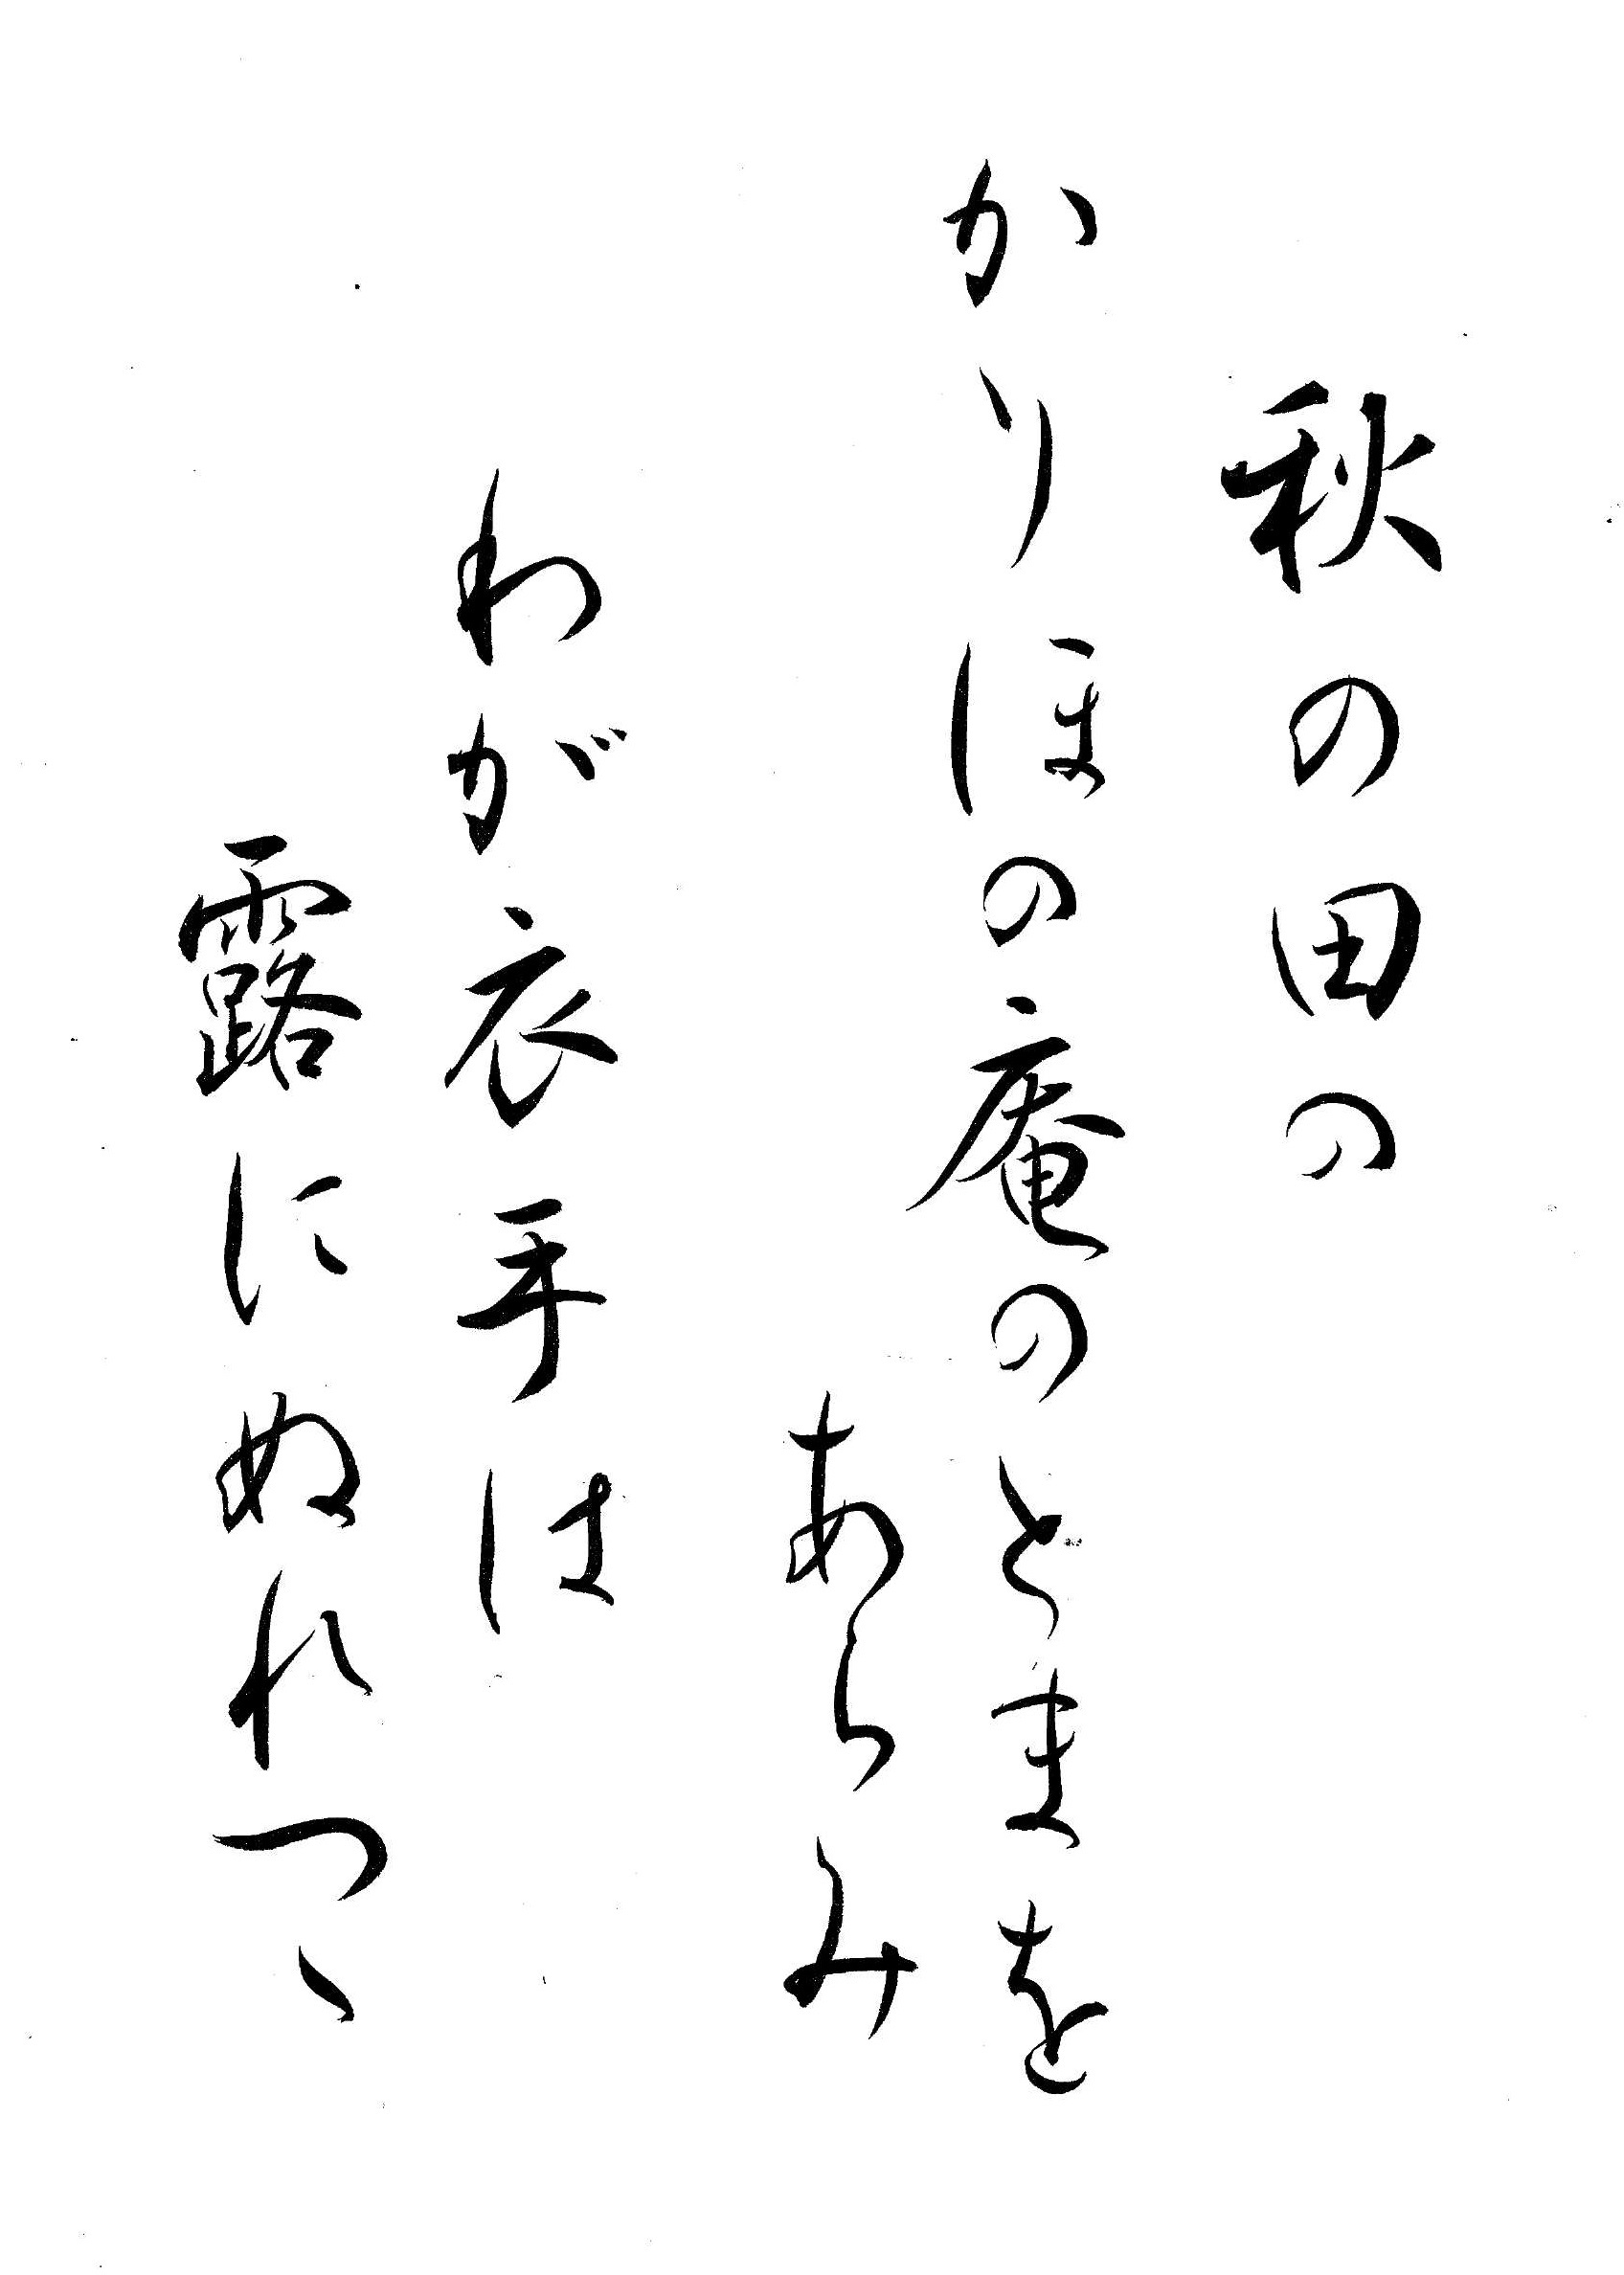 秋の田の
かりほの庵のとまを
あらみ
わが衣手は
露にぬれつゝ